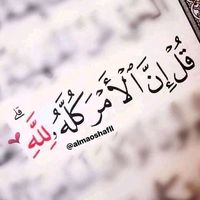 قُلْ إِنَّ ٱلْأَمْرَ كُلَّهُۥ لِلَّهِ ۗ
@almaoshafll